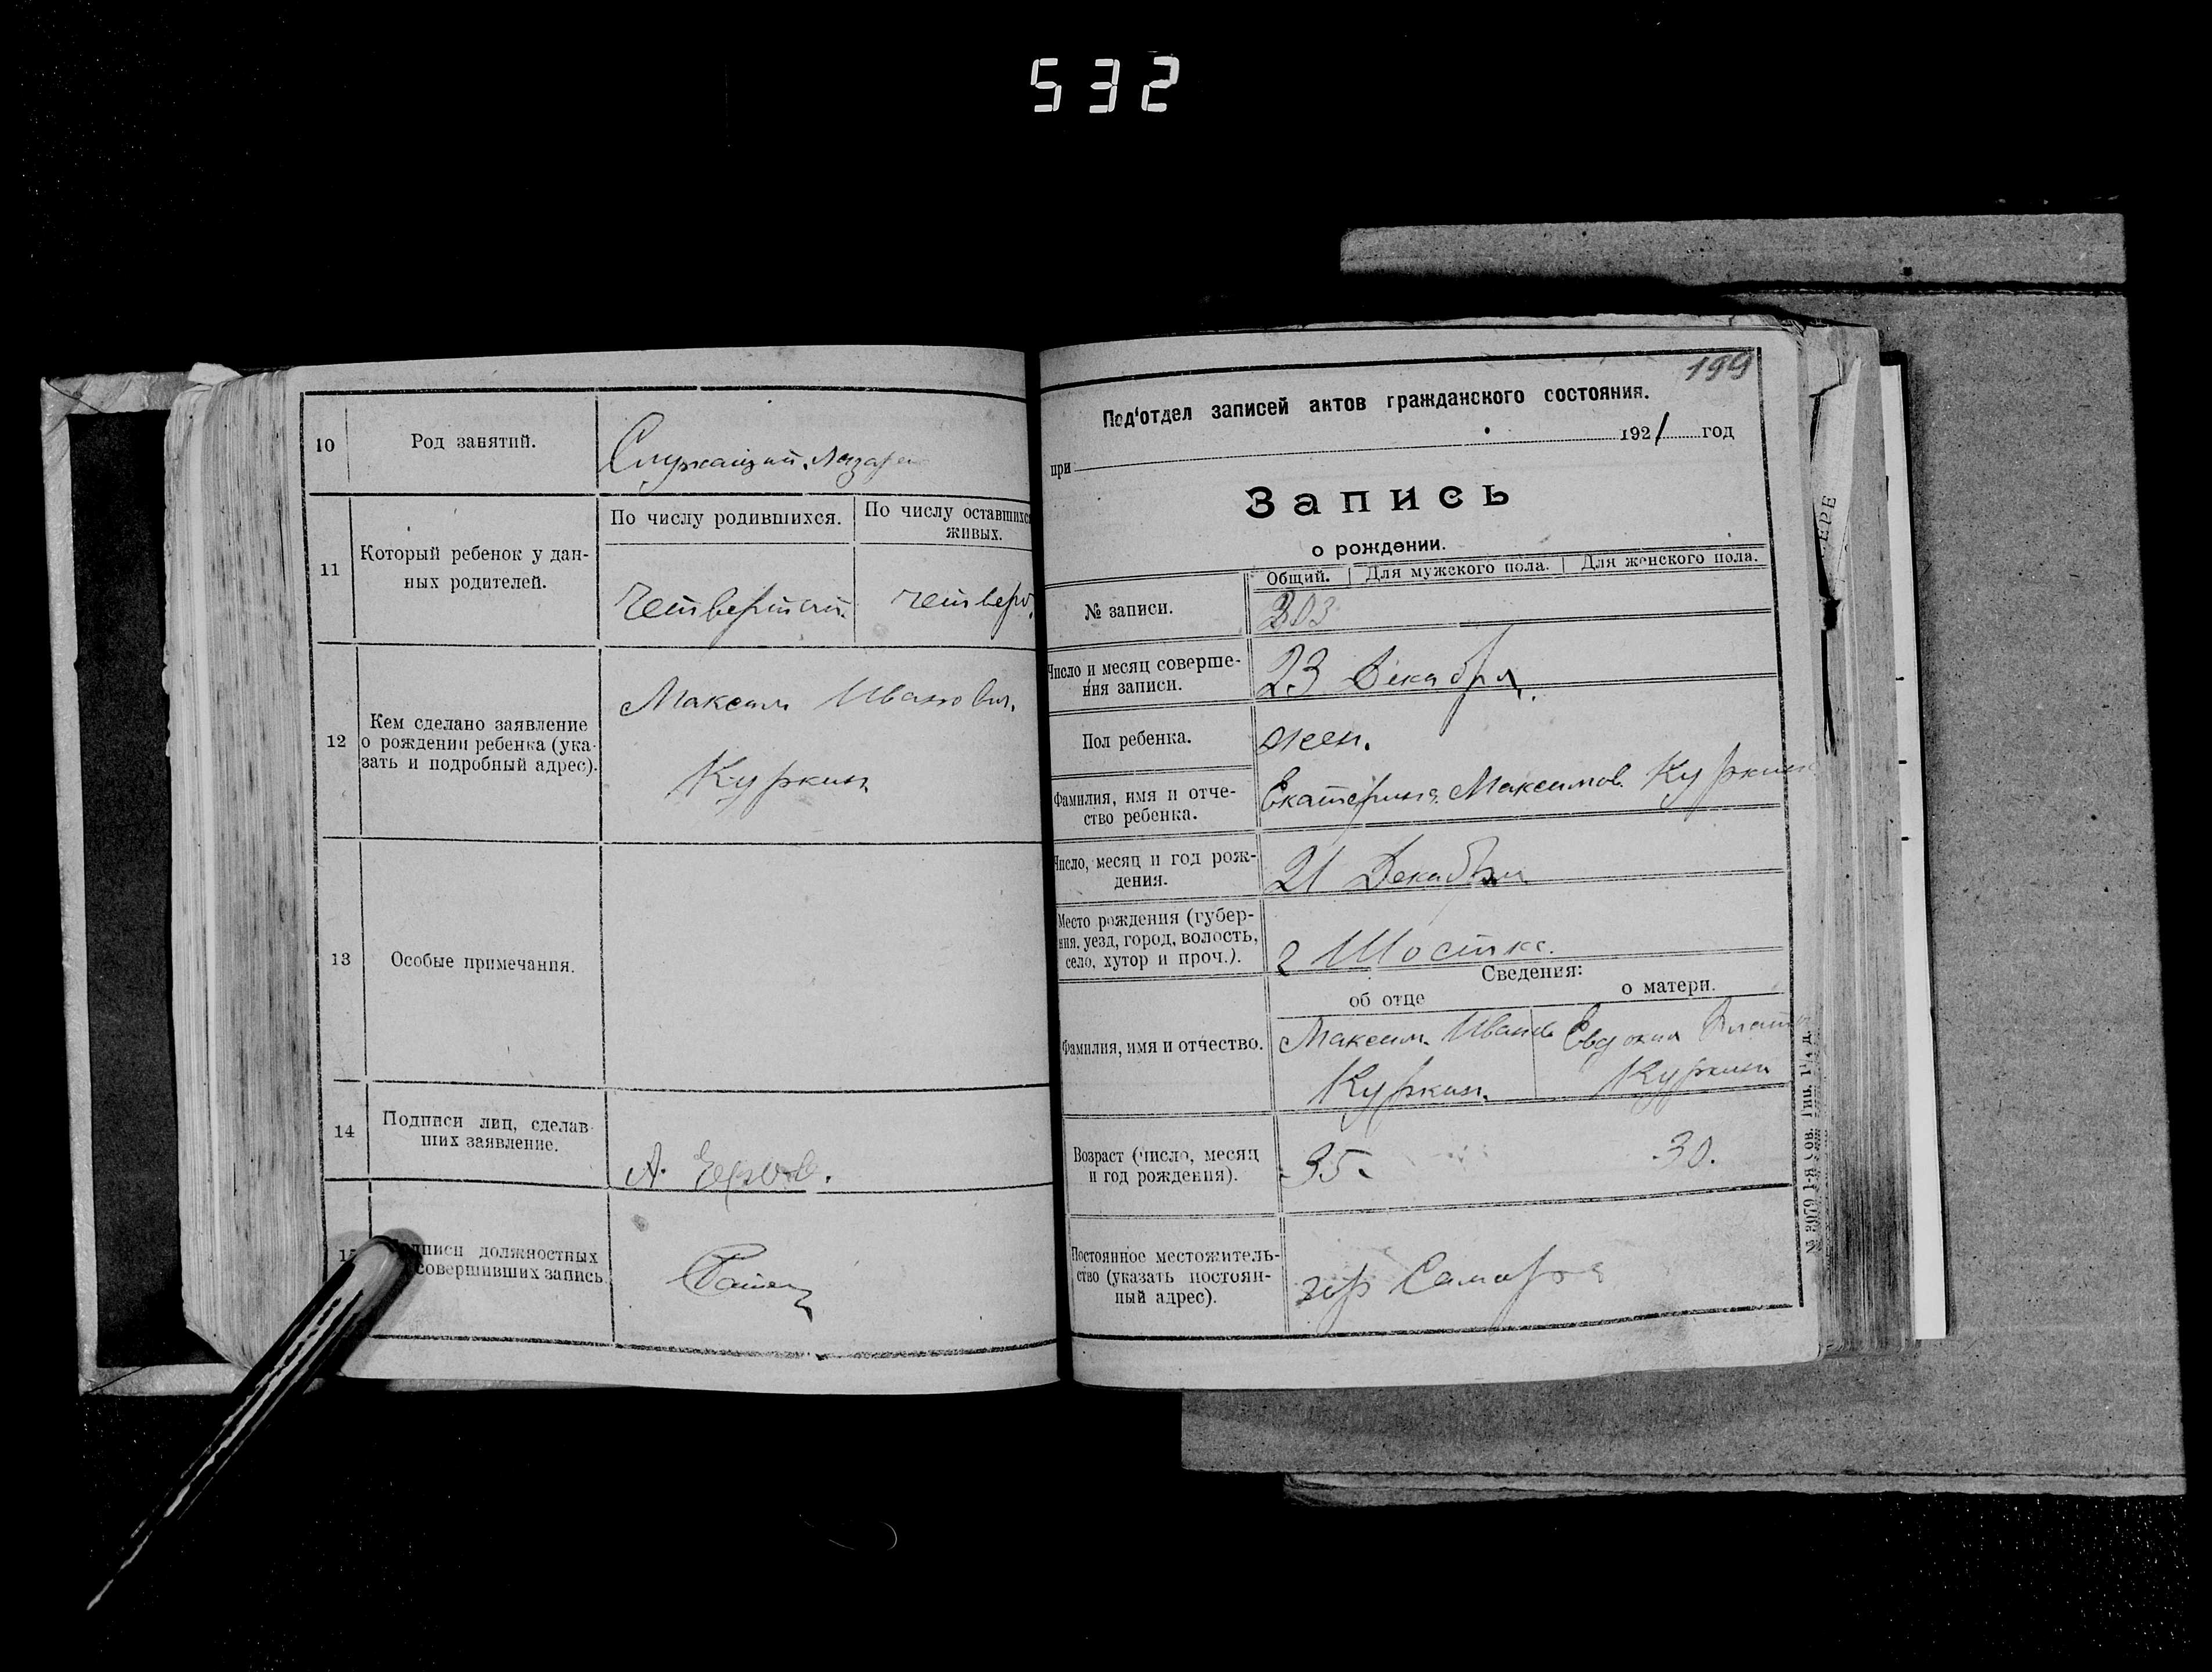 532
10
Род занятий.
Служащий.
11
Который ребенок у дан-
ных родителей.
По числу родившихся.
По числу оставшихс
живых.
Четвертый.
четверт.
12
Кем сделано заявление
о рождении ребенка (ука-
зать и подробный адрес).
Максим Иванович.
Куркин
13
Особые примечания.
14
Подписи лиц, сделав-
ших заявление.
А.
должностных
совершивших запись.
199
Под'отдел записей актов гражданского состояния.
при 1921 год
Запись
о рождении.
№ записи.
Общий. Для мужского пола. Для женского пола.
303
Число и месяц соверше-
ния записи.
23 Декабря.
Пол ребенка.
жен.
Фамилия, имя и отче-
ство ребенка.
Екатерина Максимов. Куркин
Число, месяц и год рож-
дения.
21 Декабря
Место рождения (губер-
ния, уезд, город, волость,
село, хутор и проч.).
г Шостка.
Сведения:
об отце
о матери.
Фамилия, имя и отчество.
Максим Иванов
Куркин.
Евдокия
Куркин
Возраст (число, месяц
и год рождения).
35.
30.
Постоянное местожитель-
ство (указать постоян-
ный адрес).
гор Самара
№ 3979 1-я Сов. Тип.